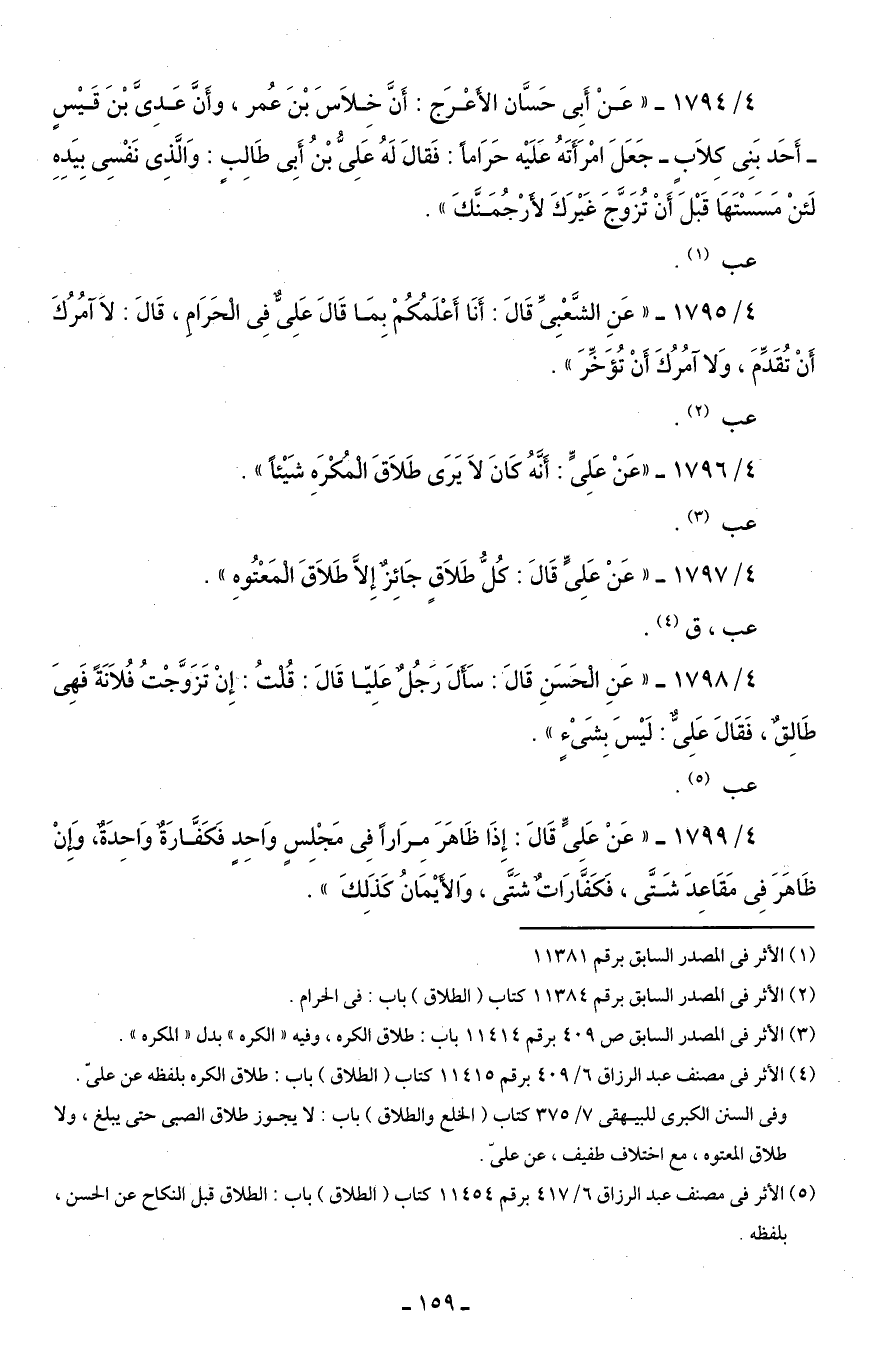 ٤/ ١٧٩٤ ـ « عَـنْ أَبِى حَسَّان الأَعْـرَجِ : أَنَّ خِـلاَسَ بْنَ عُمر ، وأَنَّ عَـدِىَّ بْنَ قَـيْسٍ
ـ أَحَد بَنِى كِلاَبٍ ـ جَعَلَ امْرَأَتَهُ عَلَيْهِ حَرَاماً : فَقالَ لَهُ عَلِىُّ بْنُ أَبِى طَالِبٍ : وَالَّذِى نَفْسِى بِيَدِهِ
لَئِنْ مَسَسْتَهَا قَبْلَ أَنْ تُزَوَّجَ غَيْرَكَ لأَرْجُمَـنَّكَ » .
عب (١) .
٤/ ١٧٩٥ ـ « عَنِ الشَّعْبِىِّ قَالَ : أَنَا أَعْلَمُكُمْ بِمَـا قَالَ عَلِىٌّ فِى الْحَرَامِ ، قَالَ : لاَ آمُرُكَ
أَنْ تُقَدِّمَ ، وَلا آمُرُكَ أَنْ تُؤَخِّرَ » .
عب (٢) .
٤/ ١٧٩٦ ـ «عَنْ عَلِىٍّ : أَنَّهُ كَانَ لاَ يَرَى طَلاَقَ الْمُكْرَهِ شَيْئاً » .
عب (٣) .
٤/ ١٧٩٧ ـ « عَنْ عَلِىٍّ قَالَ : كُلُّ طَلاَقٍ جَائِزٌ إِلاَّ طَلاَقَ الْمَعْتُوهِ » .
عب ، ق (٤) .
٤/ ١٧٩٨ ـ « عَنِ الْحَسَنِ قَالَ : سَأَلَ رَجُلٌ عَلِيّـا قَالَ : قُلْتُ : إِنْ تَزَوَّجْتُ فُلاَنَةً فَهِىَ
طَالِقٌ ، فَقَالَ عَلِىٌّ : لَيْسَ بِشَىْءٍ » .
عب (٥) .
٤/ ١٧٩٩ ـ « عَنْ عَلِىٍّ قَالَ : إِذَا ظَاهَرَ مِـرَاراً فِى مَجْلِسٍ وَاحِدٍ فَكَفَّـارَةٌ وَاحِدَةٌ، وَإِنْ
ظَاهَرَ فِى مَقَاعِدَ شَـتَّى ، فَكَفَّارَاتٌ شَتَّى ، وَالأَيْمَانُ كَذَلِكَ » .
(١) الأثر فى المصدر السابق برقم ١١٣٨١
(٢) الأثر فى المصدر السابق برقم ١١٣٨٤ كتاب ( الطلاق ) باب : فى الحرام .
(٣) الأثر فى المصدر السابق ص ٤٠٩ برقم ١١٤١٤ باب : طلاق الكره ، وفيه « الكره » بدل « المكره » .
(٤) الأثر فى مصنف عبد الرزاق ٦/ ٤٠٩ برقم ١١٤١٥ كتاب ( الطلاق ) باب : طلاق الكره بلفظه عن علىّ .
وفى السنن الكبرى للبيـهقى ٧/ ٣٧٥ كتاب ( الخلع والطلاق ) باب : لا يجـوز طلاق الصبى حتى يبلغ ، ولا
طلاق المعتوه ، مع اختلاف طفيف ، عن علىّ .
(٥) الأثر فى مصنف عبد الرزاق ٦/ ٤١٧ برقم ١١٤٥٤ كتاب ( الطلاق ) باب : الطلاق قبل النكاح عن الحسن ،
بلفظه .
ـ ١٥٩ ـ